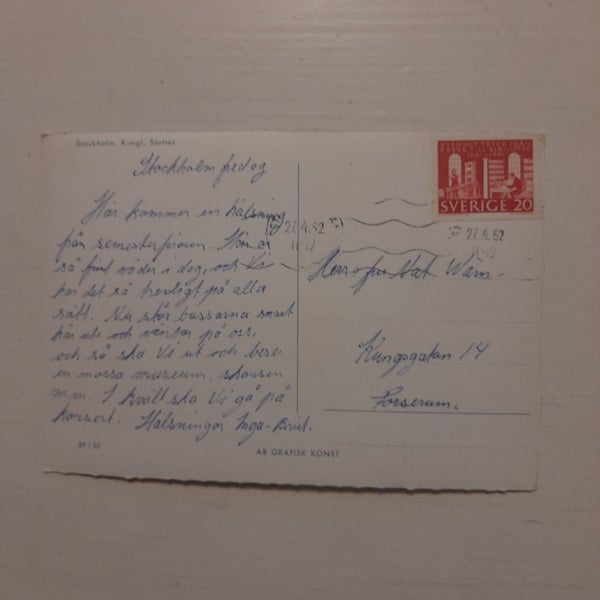 Stockholm. Kungl. Slottet.
Stockholm fredag
Här kommer en hälsning
från semesterfiraren. Här är
så fint väder i dag, och Vi
har det så trevligt på alla
sätt. Nu står bussarna snart
här ute och väntar på oss,
och så ska Vi ut och bese
en massa museum, skansen
m.m. I kväll ska Vi gå på
konsert. Hälsningar Inga-Britt.
89 / 30
AB GRAFISK KONST
SVERIGE 20
27.4.62
11-12
27.4.62
11-12
Herr o fru Nat Wärn
Kungsgatan 14
Forserum.